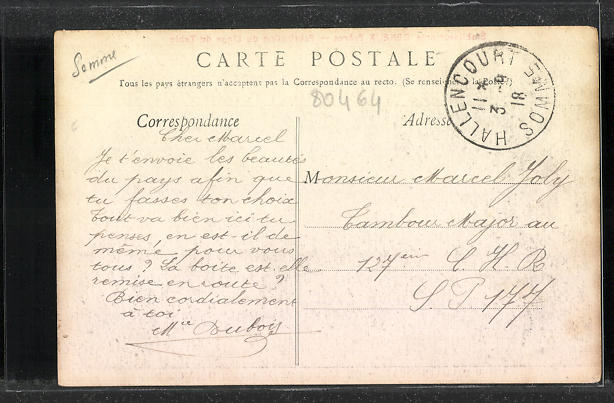 Somme
CARTE POSTALE
Tous les pays étrangers n'acceptent pas la Correspondance au recto. (Se renseigner à la Poste)
80464
HALLENCOURT SOMME
11 * 3 18
Correspondance
Adresse
Cher Marcel
Je t'envoie les beautés
du pays afin que
tu fasses ton choix
Tout va bien ici tu
penses, en est-il de
même pour vous
tous? La boîte est-elle
remise en route?
Bien cordialement
à toi
Mce Dubois
Monsieur Marcel Joly
Tambour Major au
127em C. H. R
S. P 177